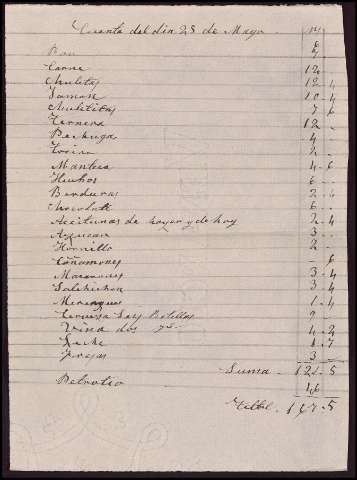 Cuenta del dia 25 de Mayo
Pan 6
Carne 12
Chuletas 12 4
Jamon 10 4
Chuletitas 7 6
Ternera 12
Pechuga 4
Tocino 2
Manteca 4 6
Huebos 6
Berduras 2 4
Chocolate 6
Aceitunas de hayer y de hoy 2 4
Azucar 3
Hornillo 2
Cañamones 6
Macarrones 3 4
Salchichon 3 4
Merengues 1 4
Cerveza Seis Botellas 9
Vino dos 4 2
Leche 1 7
Fresas 3
Suma 121 5
16
Total 137 5